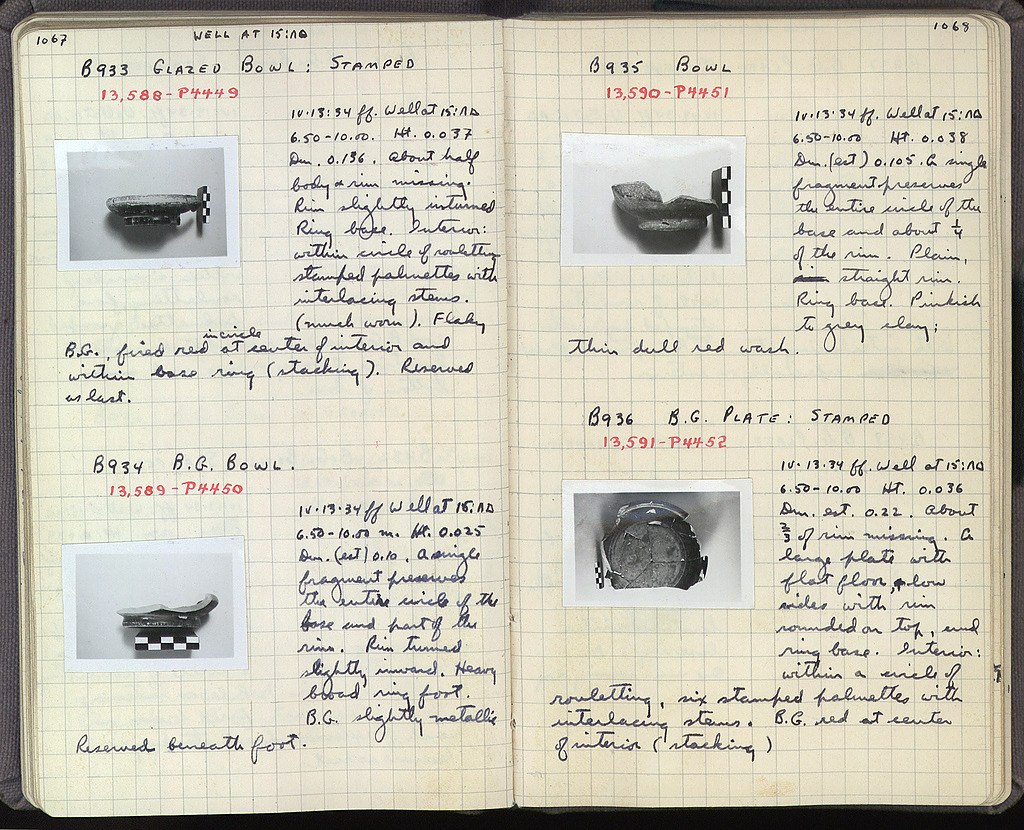 1067
WELL AT 15:ΛΔ
B933 GLAZED BOWL: STAMPED
13,588-P4449
IV.13.34 ff. Well at 15:ΛΔ
6.50-10.00. Ht. 0.037
Dm. 0.136. About half
body & rim missing.
Rim slightly inturned
Ring base. Interior:
within circle of rouletting
stamped palmettes with
interlacing stems.
(much worn). Flaky
in circle
B.G., fired red at center of interior and
within base ring (stacking). Reserved
as last.
B934 B.G. BOWL.
13,589-P4450
IV.13.34 ff Well at 15:ΛΔ
6.50-10.00 m. Ht. 0.025
Dm. (est) 0.10. A single
fragment preserves
the entire circle of the
base and part of the
rim. Rim turned
slightly inward. Heavy
broad ring foot.
B.G. slightly metallic
Reserved beneath foot.
1068
B935 BOWL
13,590-P4451
IV.13.34 ff. Well at 15:ΛΔ
6.50-10.00 Ht. 0.038
Dm. (est) 0.105. A single
fragment preserves
the entire circle of the
base and about 1/4
of the rim. Plain,
straight rim.
Ring base. Pinkish
to grey clay;
thin dull red wash.
B936 B.G. PLATE: STAMPED
13,591-P4452
IV.13.34 ff. Well at 15:ΛΔ
6.50-10.00 Ht. 0.036
Dm. est. 0.22. About
2/3 of rim missing. A
large plate with
flat floor, low
sides with rim
rounded on top, and
ring base. Interior:
within a circle of
rouletting, six stamped palmettes with
interlacing stems. B.G. red at center
of interior (stacking)